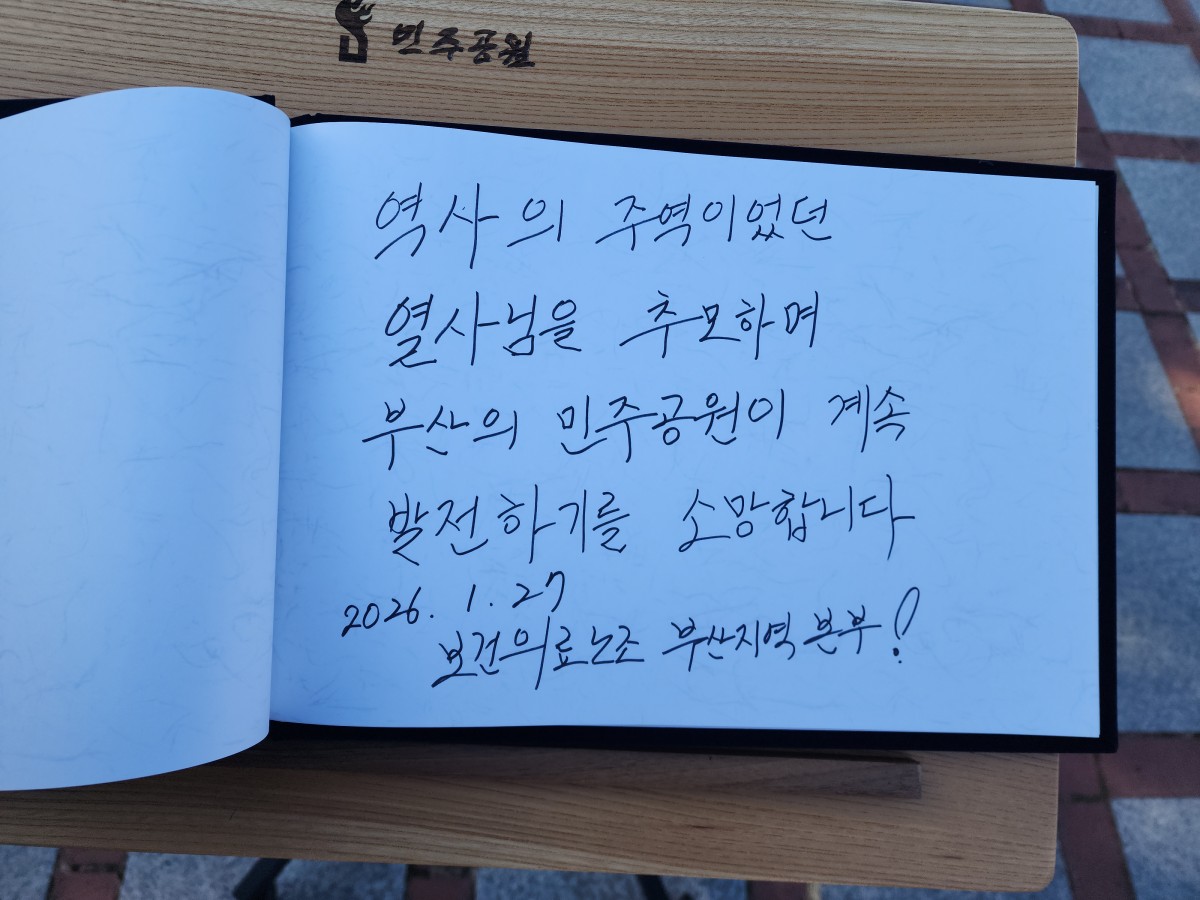 민주공원
역사의 주역이었던
열사님을 추모하며
부산의 민주공원이 계속
발전하기를 소망합니다
2026. 1. 27
보건의료노조 부산지역본부!